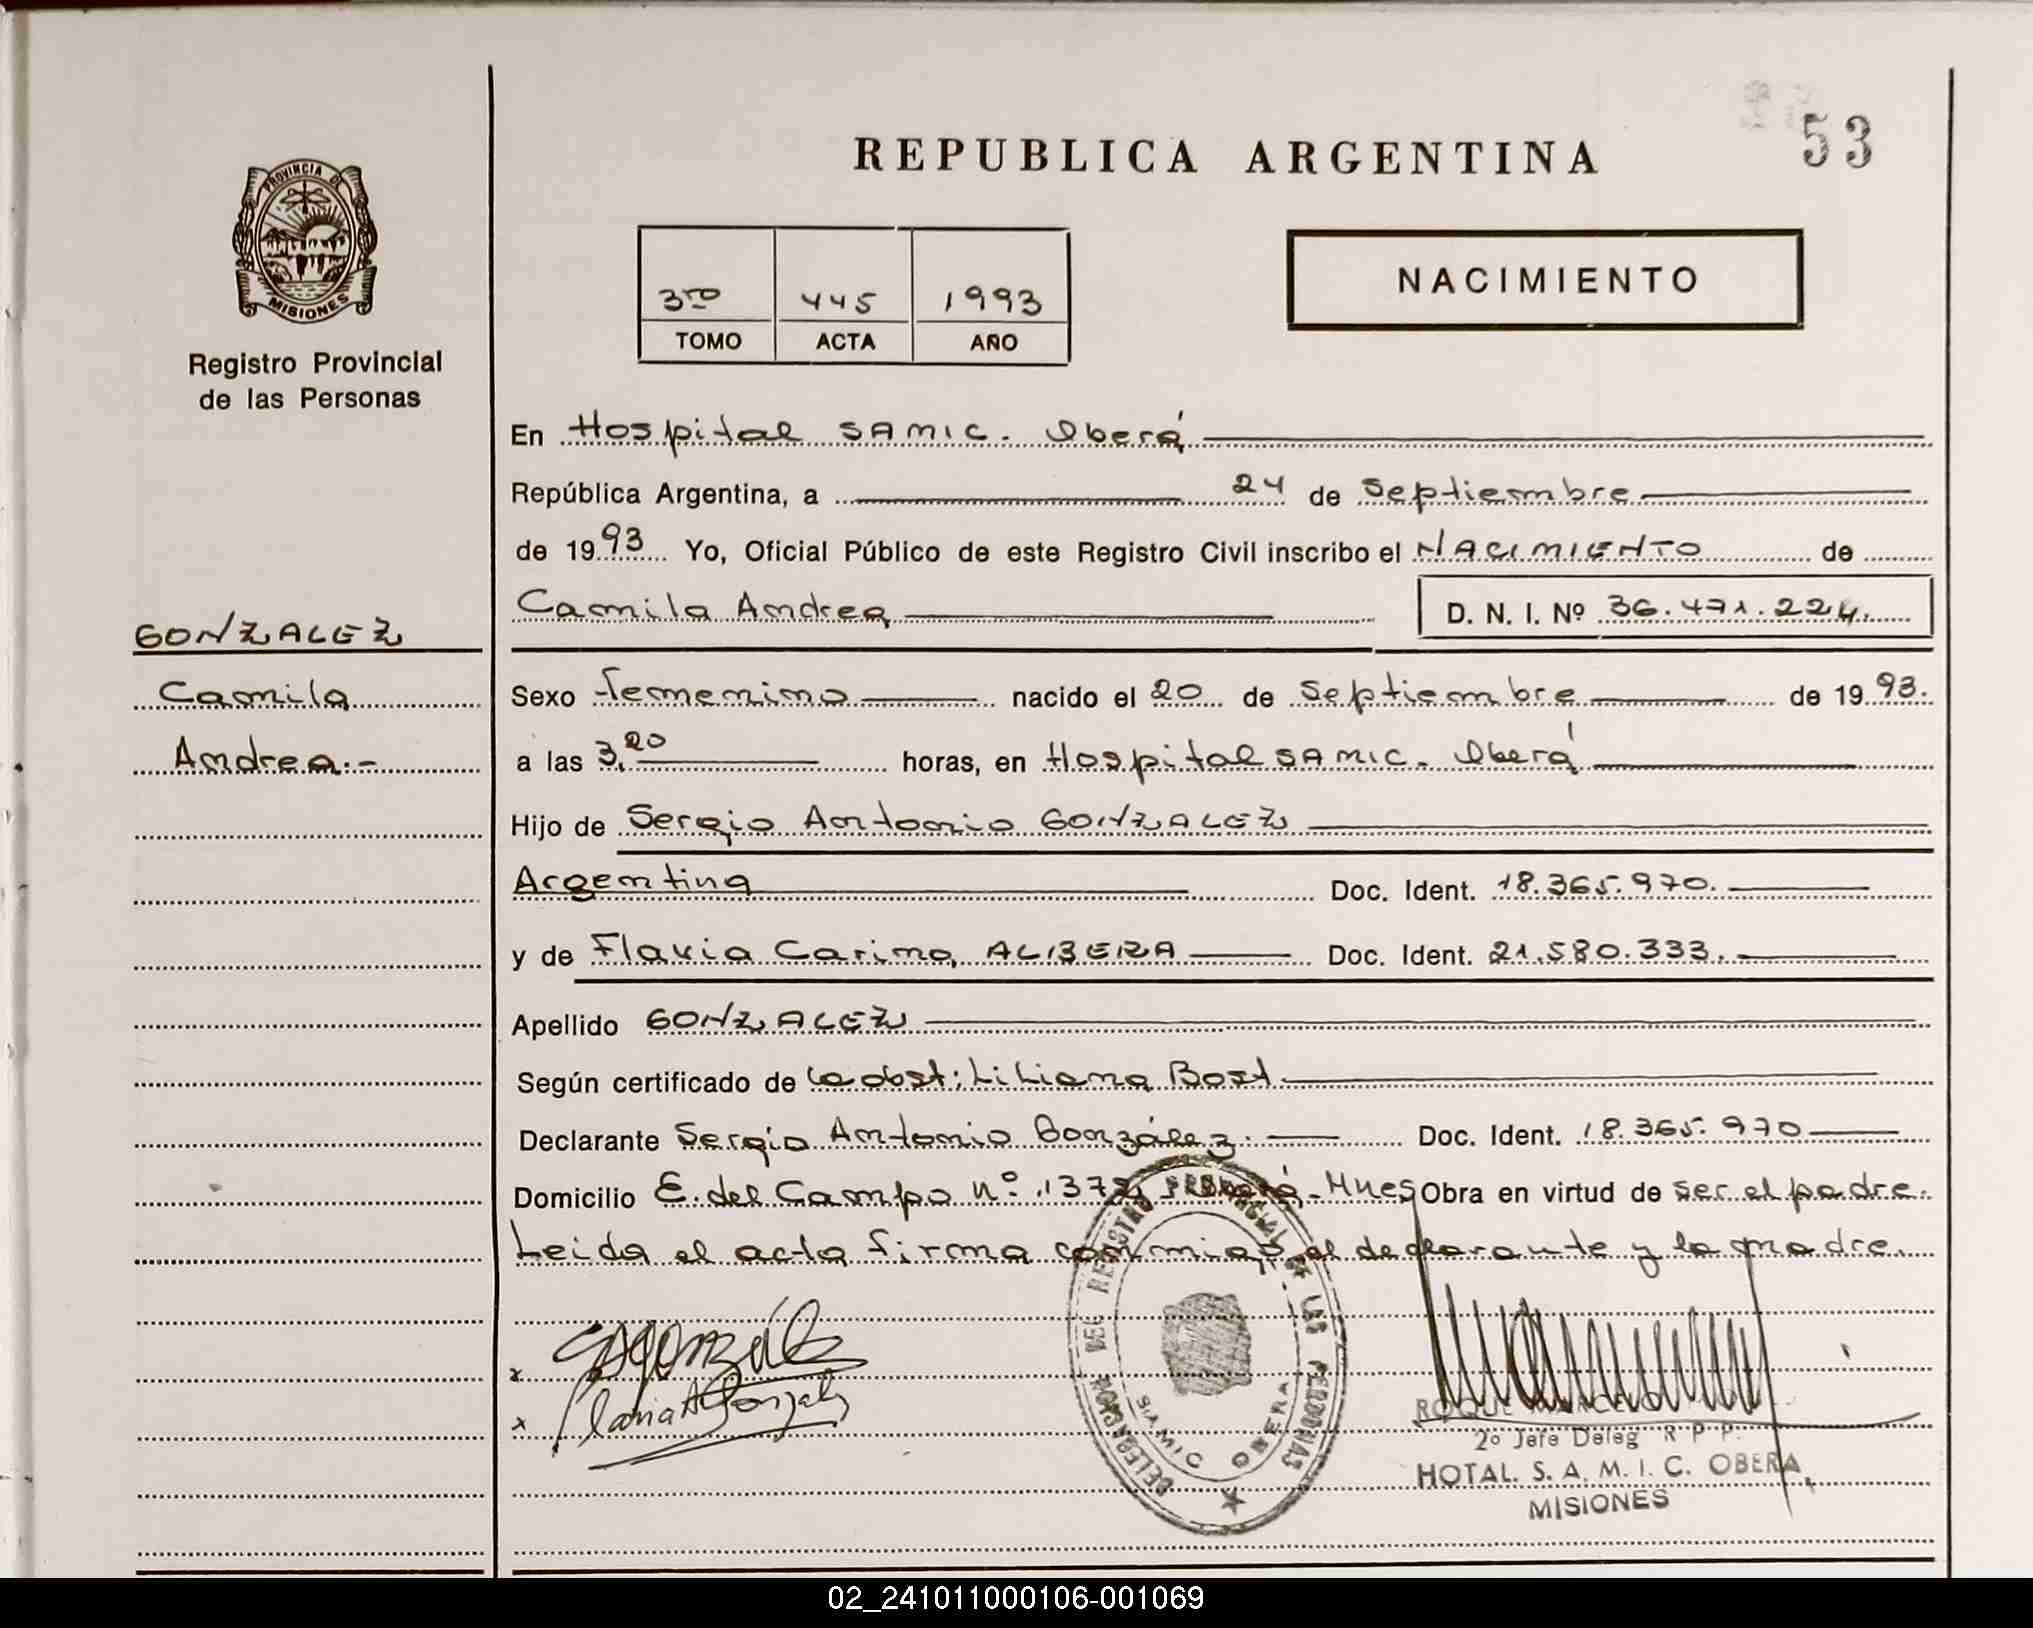 53
REPUBLICA ARGENTINA
PROVINCIA DE
MISIONES
Registro Provincial
de las Personas
3ro 445 1993
TOMO ACTA AÑO
NACIMIENTO
En Hospital SAMIC. Oberá
República Argentina, a 24 de Septiembre
de 1993 Yo, Oficial Público de este Registro Civil inscribo el NACIMIENTO de
Camila Andrea D. N. I. Nº 36.471.224.
GONZALEZ
Camila
Andrea.-
Sexo femenino nacido el 20 de Septiembre de 1993.
a las 3,20 horas, en Hospital SAMIC. Oberá
Hijo de Sergio Antonio GONZALEZ
Argentina Doc. Ident. 18.365.970.
y de Flavia Carina ALBERA Doc. Ident. 21.580.333.
Apellido GONZALEZ
Según certificado de la obst: Liliana Bost
Declarante Sergio Antonio González. Doc. Ident. 18.365.970
Domicilio E. del Campo nº 1372, Oberá, Mnes Obra en virtud de ser el padre.
Leida el acta firma conmigo, el declarante y la madre.
x
x
DELEGACION DEL REGISTRO PROVINCIAL DE LAS PERSONAS
S.A.M.I.C. OBERA
ROQUE
2º Jefe Deleg R. P. P.
HOTAL. S. A. M. I. C. OBERA,
MISIONES
02_241011000106-001069